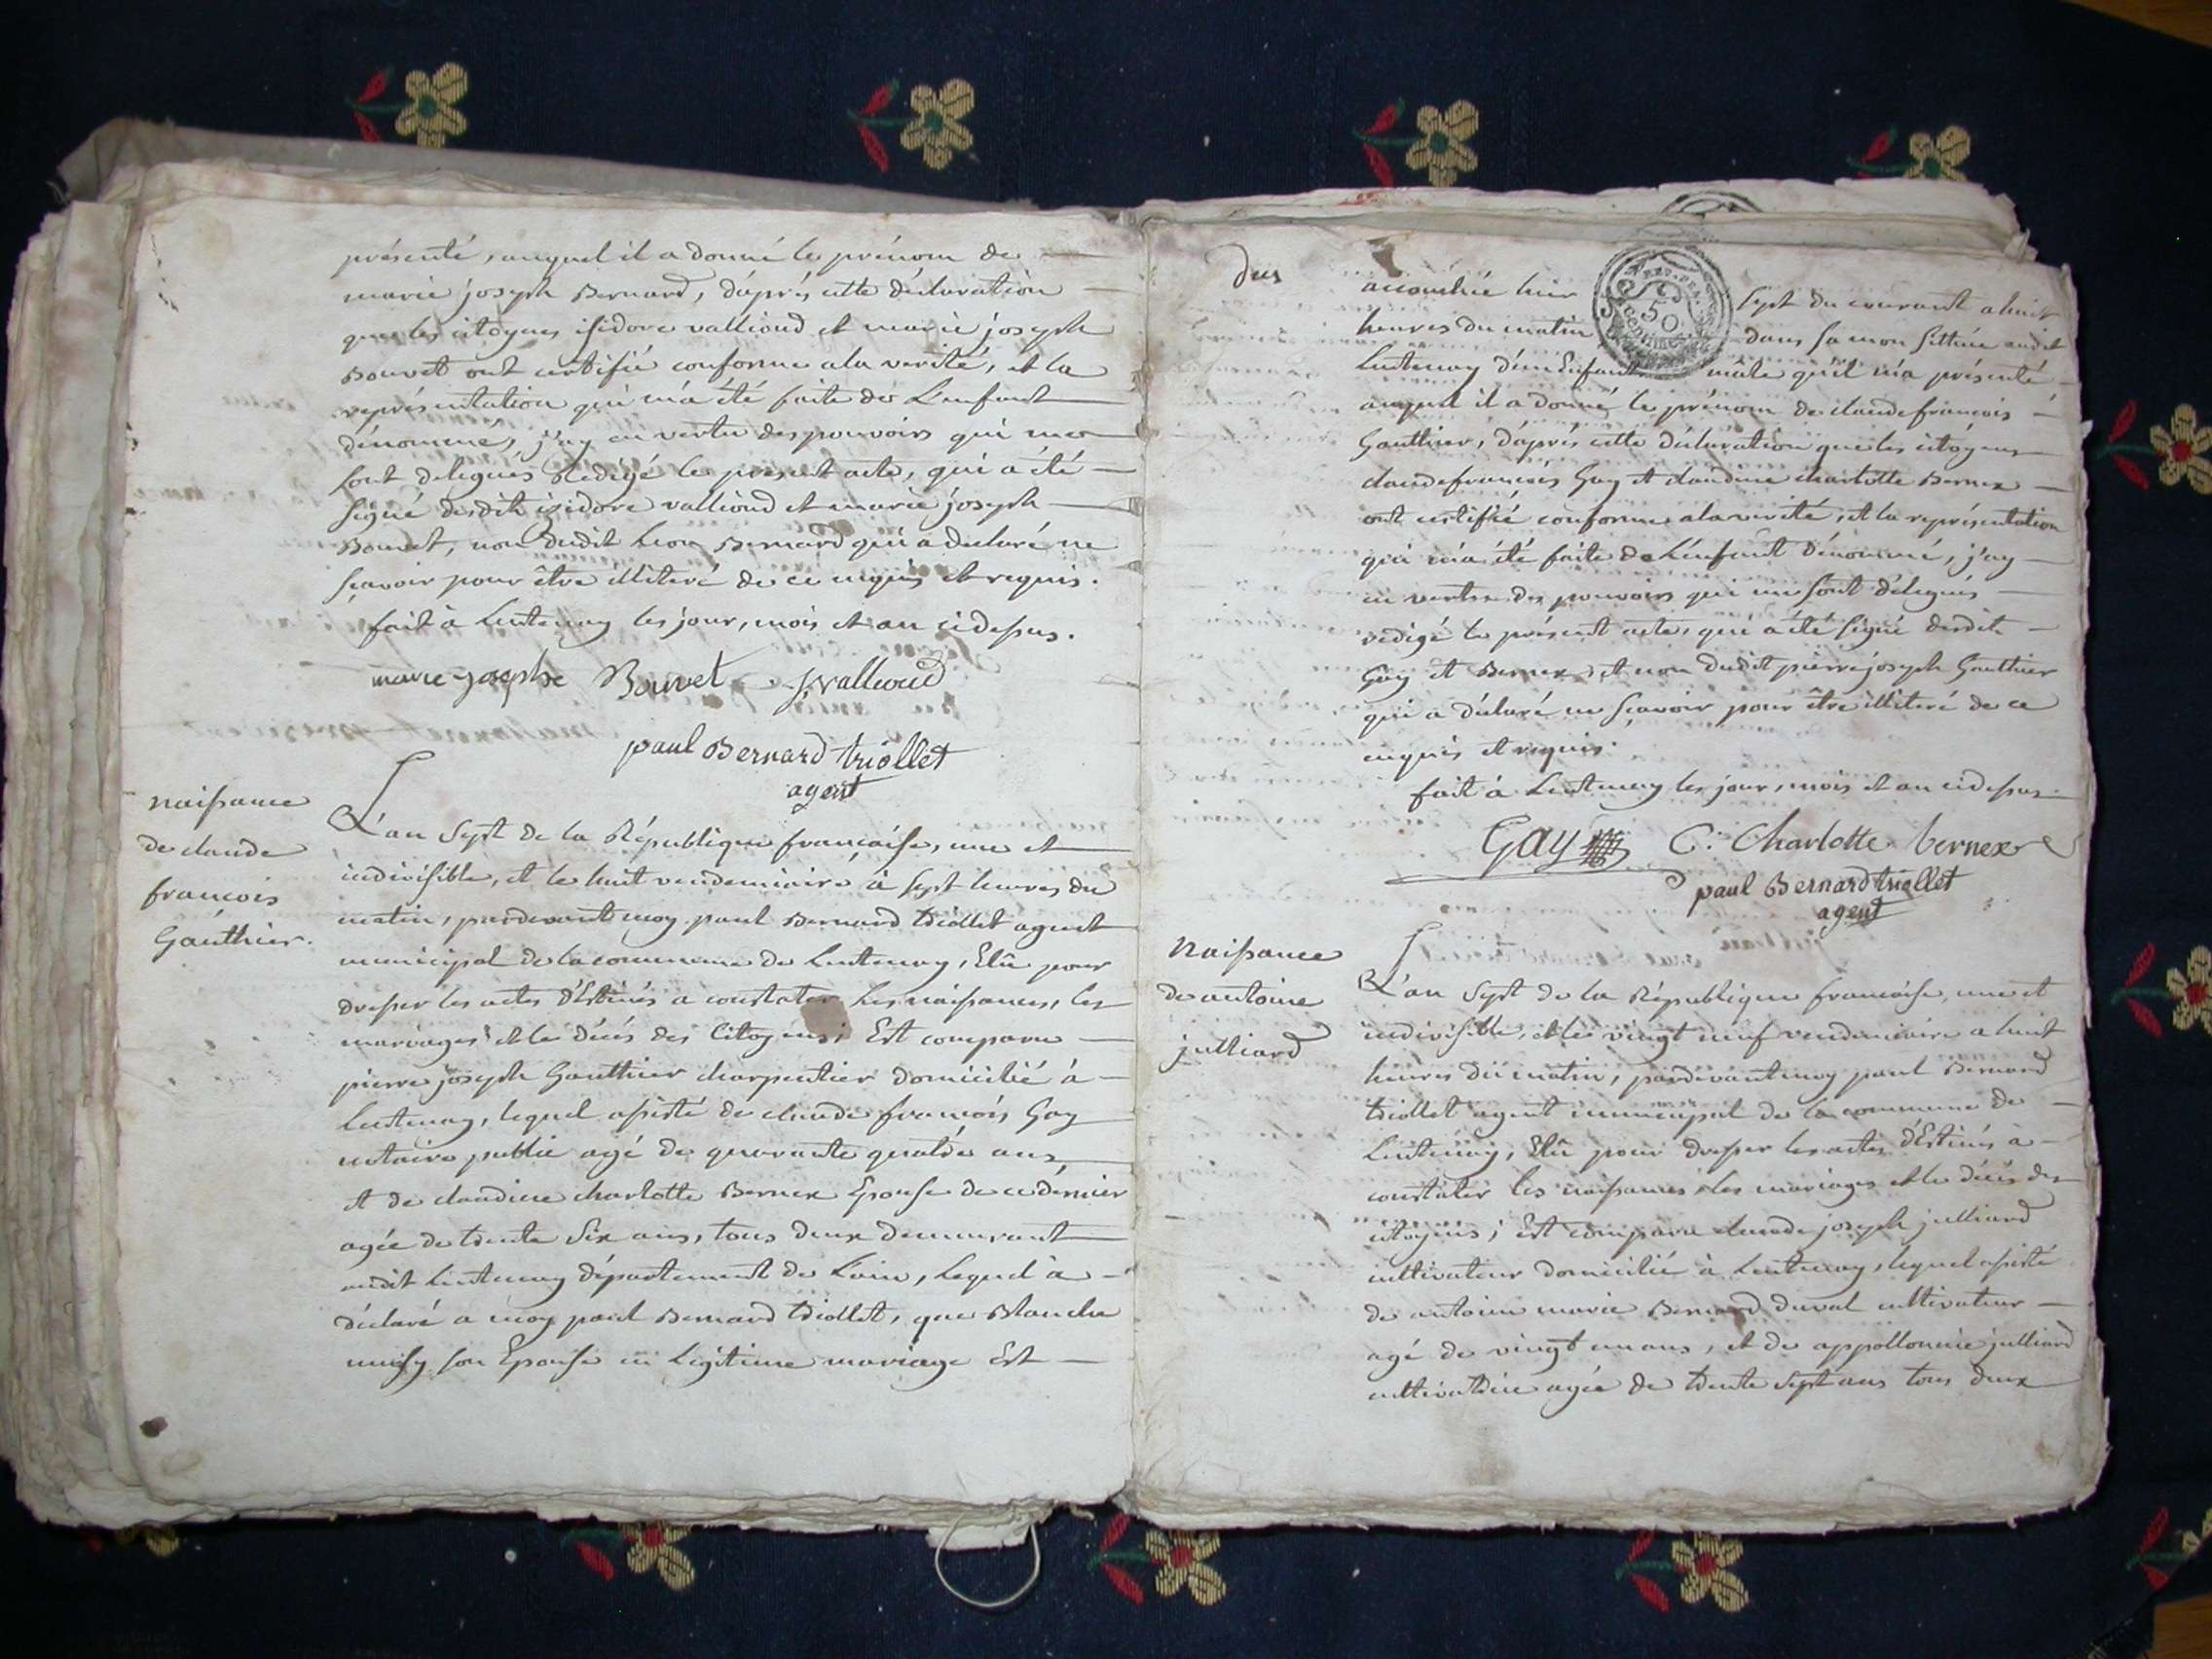 présenté, auquel il a donné le prénom de
marie joseph Bernard, d'aprés cette déclaration
que les citoyens isidore vallioud et marie joseph
Bouvet ont certifié conforme a la verité, et la
représentation qui m'a été faite de L'enfant
dénommé, j'ay en vertu des pouvoirs qui me
sont delegués Rédigé le présent acte, qui a été
signé desdits isidore vallioud et marie joseph
Bouvet, non dudit Bernard qui a declaré ne
sçavoir pour être illiteré de ce enquis et requis.
fait à Lentenay les jour, mois et an cidessus.
marie josephe Bouvet vallioud
paul Bernard triollet
agent
naissance
de claude
francois
Gauthier.
L'an sept de la République françaisse, une et
indivisible, et le huit vendemiaire à sept heures du
matin, pardevant moy paul Bernard triollet agent
municipal de la commune de Lentenay, Elû pour
dresser les actes d'Estinés a constater Les naissances, les
mariages et le décés des Citoyens; Est comparu
pierre joseph Gauthier charpentier domicilié à
Lentenay, lequel assisté de claude francois Gay
notaire public agé de quarante quatre ans
et de claudine charlotte Bernex Epouse de ce dernier
agée de trente six ans, tous deux demeurant
audit Lentenay département de L'ain, Lequel à
déclaré a moy paul Bernard triollet, que Blanche
son Epouse en Légitime mariage Est
accouchée hier sept du courant a huit
REP. FRA.
50
centimes
heures du matin dans sa mon sittuée audit
Lentenay d'un Enfant mâle qu'il m'a présenté
auquel il a donné le prénom de claude francois
Gauthier, d'aprés cette déclaration que les citoyens
claude francois Gay et claudine charlotte Bernex
ont certifié conforme a la verité, et la représentation
qui m'a été faite de L'enfant dénommé, j'ay
en vertu des pouvoirs qui me sont délegués
redigé le présent acte, qui a été signé desdits
Gay et Bernex, et non dudit pierre joseph Gauthier
qui a déclaré ne sçavoir pour être illiteré de ce
enquis et requis.
fait à Lentenay les jour, mois et an cidessus.
Gay C. Charlotte bernex
paul Bernard triollet
agent
naissance
de antoine
julliard
L'an sept de la République francaise, une et
indivisible, et le vingt neuf vendemiaire a huit
heures du matin, pardevant moy paul Bernard
triollet agent municipal de la commune de
Lentenay, Elû pour dresser les actes d'Estinés à
constater les naissances, les mariages et le décés des
citoyens; Est comparu claude joseph julliard
cultivateur domicilié à Lentenay, lequel assisté
de antoine marie Bernard duval cultivateur
agé de vingt un ans, et de appollonie julliard
cultivatrice agée de trente sept ans tous deux